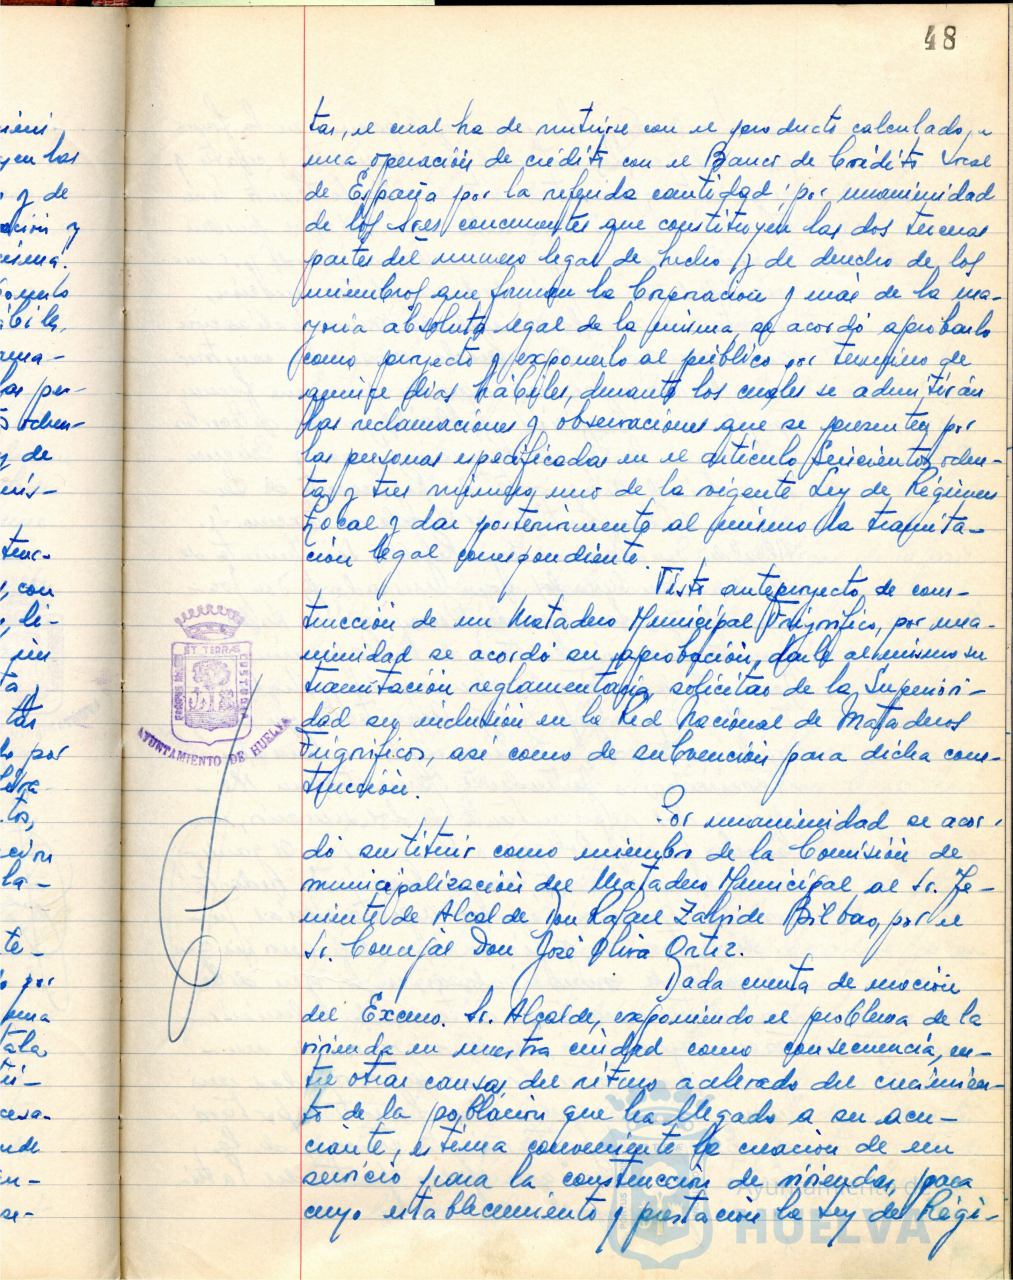 48
tas, el cual ha de nutrirse con el producto calculado, a
una operación de crédito con el Banco de Crédito Local
de España por la referida cantidad; por unanimidad
de los Sres concurrentes que constituyen las dos terceras
partes del numero legal de hecho y de derecho de los
miembros que forman la Corporación y más de la ma-
yoria absoluta legal de la misma se acordó aprobarlo
como proyecto y exponerlo al público por termino de
quince dias hábiles, durante los cuales se admitirán
las reclamaciones y observaciones que se presenten por
las personas especificadas en el artículo Seiscientos ochen-
ta y tres número uno de la vigente Ley de Régimen
Local y dar posteriormente al mismo la tramita-
ción legal correspondiente.
Visto anteproyecto de cons-
trucción de un Matadero Municipal Frigorífico, por una-
nimidad se acordó su aprobación, darle al mismo su
tramitación reglamentaria, solicitar de la Superiori-
dad su inclusión en la Red Nacional de Mataderos
Frigorificos, así como de subvención para dicha cons-
trucción.
Por unanimidad se acor-
dó sustituir como miembro de la Comisión de
municipalización del Matadero Municipal al Sr. Te-
niente de Alcalde Don Rafael Zalvide Bilbao, por el
Sr. Concejal Don José Oliva Ortiz.
Dada cuenta de moción
del Excmo. Sr. Alcalde, exponiendo el problema de la
vivienda en nuestra ciudad como consecuencia, en-
tre otras causas del ritmo acelerado del crecimien-
to de la población que ha llegado a ser acu-
ciante, estima conveniente la creación de un
servicio para la construcción de viviendas para
cuyo establecimiento y prestación la Ley de Régi-
AYUNTAMIENTO DE HUELVA
Ayuntamiento de
HUELVA